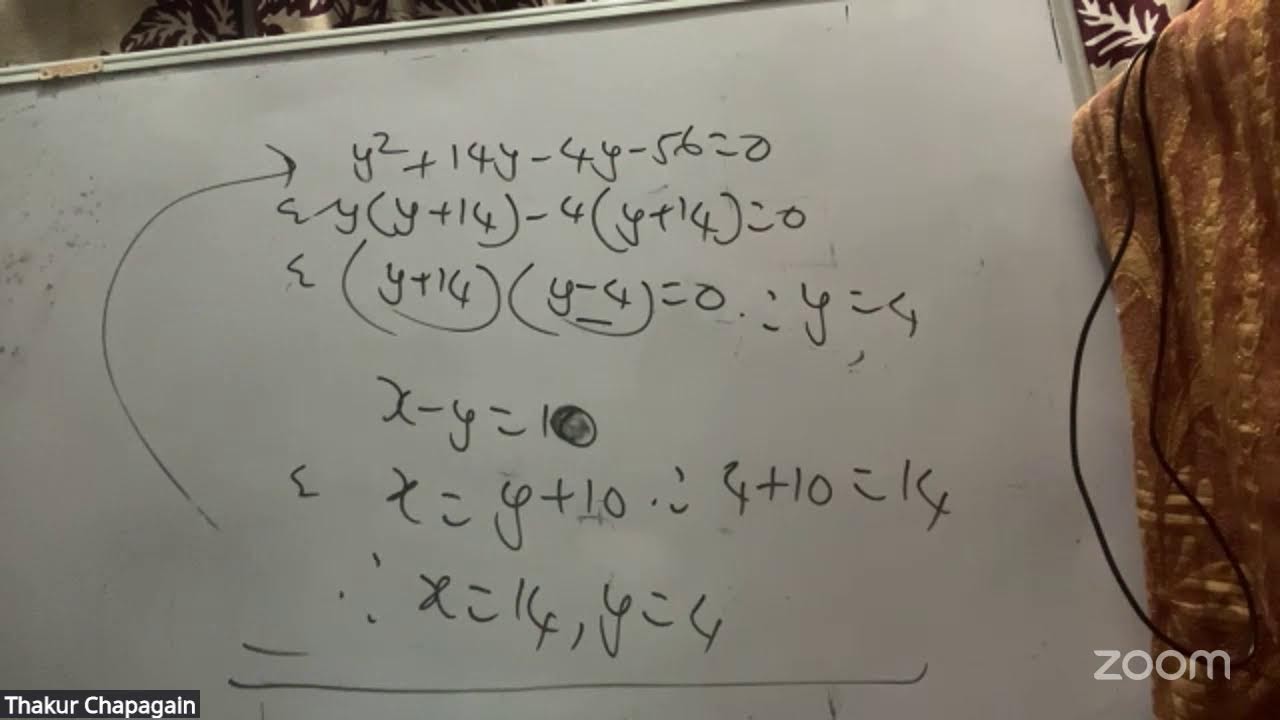 y²+14y-4y-56=0
y(y+14)-4(y+14)=0
(y+14)(y-4)=0 ∴ y=4
x-y=10
x=y+10 ∴ 4+10=14
∴ x=14, y=4
zoom
Thakur Chapagain